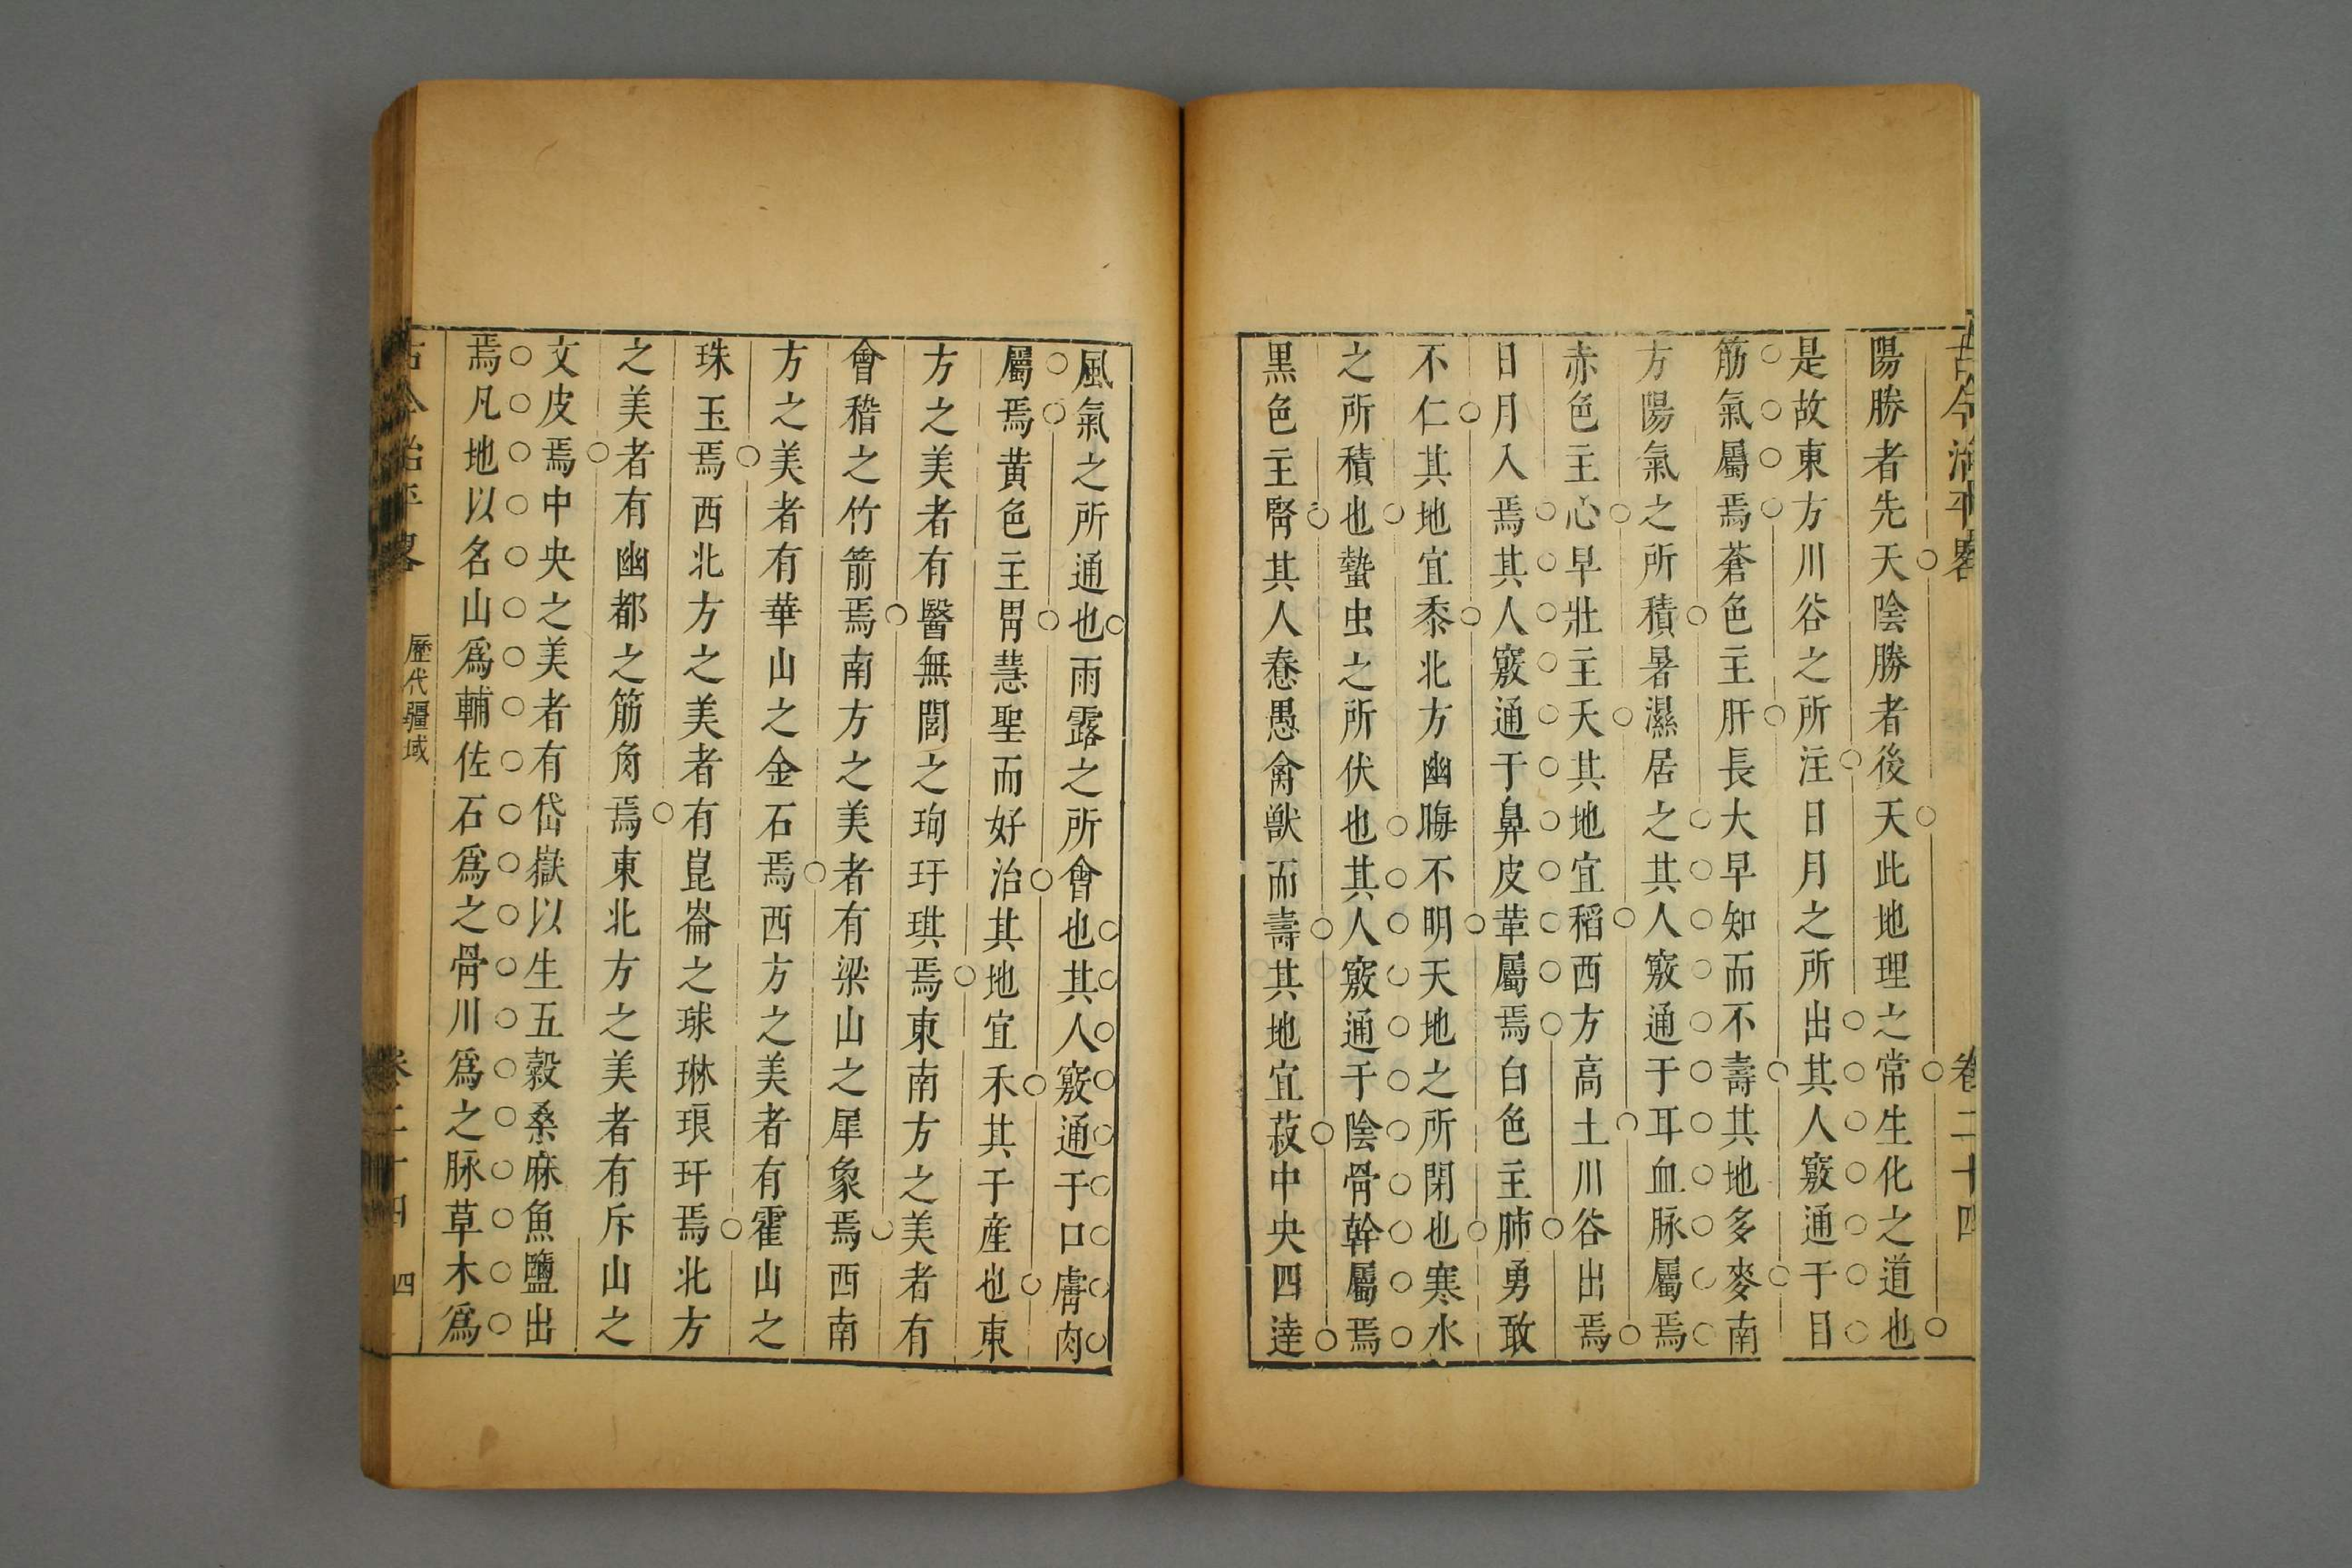 古今治平畧
卷二十四
陽勝者先天陰勝者後天此地理之常生化之道也
是故東方川谷之所注日月之所出其人竅通于目
筋氣屬焉蒼色主肝長大早知而不壽其地多麥南
方陽氣之所積暑濕居之其人竅通于耳血脉屬焉
赤色主心早壯主夭其地宜稻西方高土川谷出焉
日月入焉其人竅通于鼻皮革屬焉白色主肺勇敢
不仁其地宜黍北方幽晦不明天地之所閉也寒水
之所積也蟄虫之所伏也其人竅通于陰骨幹屬焉
黑色主腎其人惷愚禽獸而壽其地宜菽中央四達
風氣之所通也雨露之所會也其人竅通于口膚肉
屬焉黃色主胃慧聖而好治其地宜禾其于產也東
方之美者有醫無閭之珣玗琪焉東南方之美者有
會稽之竹箭焉南方之美者有梁山之犀象焉西南
方之美者有華山之金石焉西方之美者有霍山之
珠玉焉西北方之美者有崑崙之球琳琅玕焉北方
之美者有幽都之筋角焉東北方之美者有斥山之
文皮焉中央之美者有岱嶽以生五穀桑麻魚鹽出
焉凡地以名山爲輔佐石爲之骨川爲之脉草木爲
古今治平畧
歷代疆域
卷二十四
四